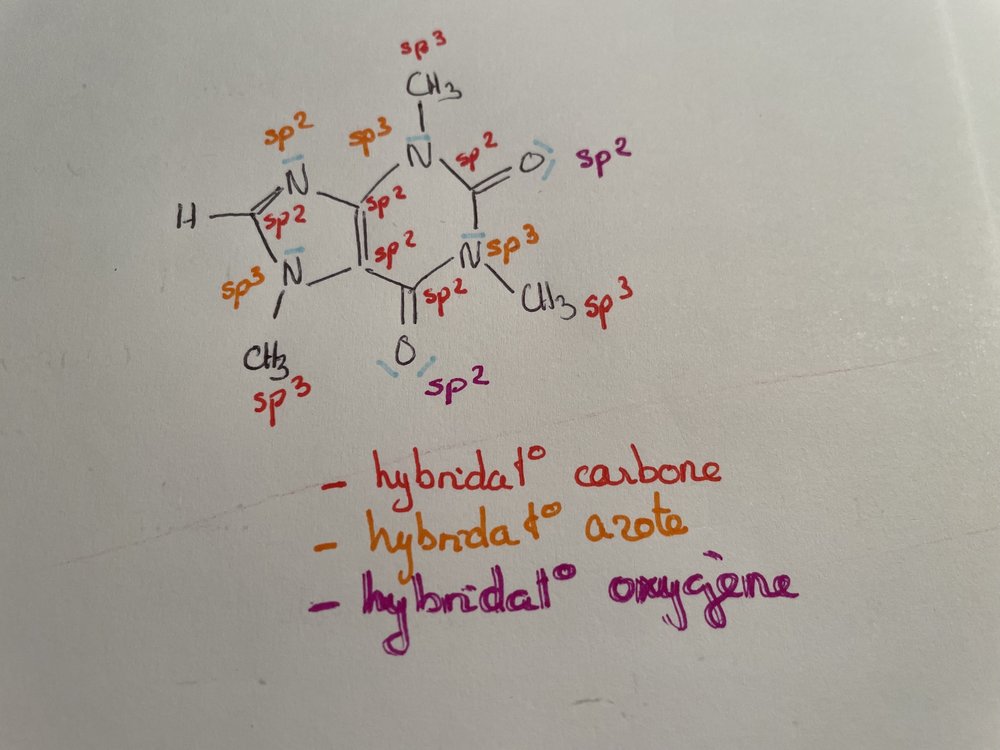 sp³
CH₃
sp² sp³ N sp² O sp²
N
H sp² sp²
sp²
sp³ N N sp³
sp² CH₃ sp³
CH₃ O
sp³ sp²
- hybridat° carbone
- hybridat° azote
- hybridat° oxygène